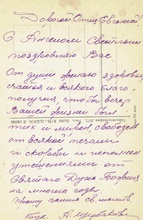 Дорогой Отец Евгений
С Ангелом Светлым
поздравляю Вас.
От души желаю здоровья
счастья и всякого благо-
получия, что бы вечер
Вашей жизни был
тих и мирен, свободен
от всякой печали
и скорби и исполнен
утешениями от
Святаго Духа Божия
на многа года.